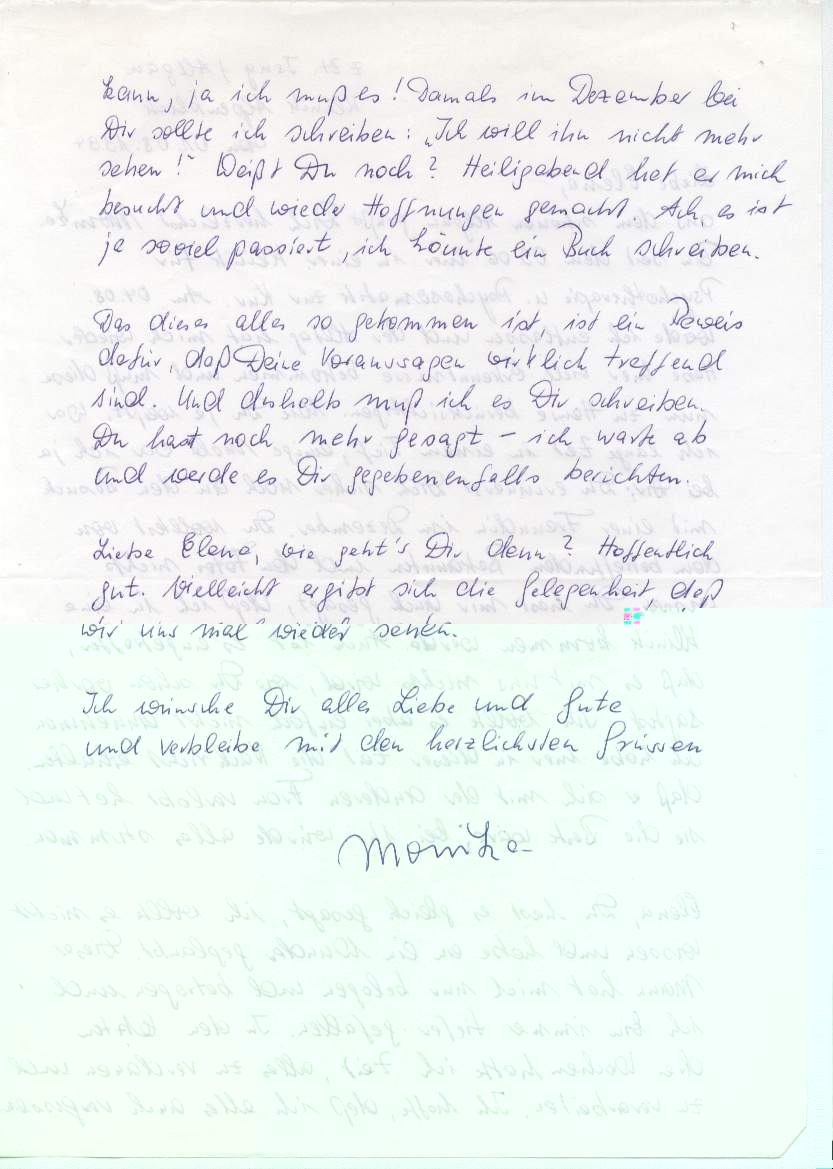 kann, ja ich muß es! Damals im Dezember bei
Dir sollte ich schreiben: „Ich will ihn nicht mehr
sehen!" Weißt Du noch? Heiligabend hat er mich
besucht und wieder Hoffnungen gemacht. Ach, es ist
ja soviel passiert, ich könnte ein Buch schreiben.
Das dieses alles so gekommen ist, ist ein Beweis
dafür, daß Deine Voraussagen wirklich treffend
sind. Und deshalb muß ich es Dir schreiben.
Du hast noch mehr gesagt – ich warte ab
und werde es Dir gegebenenfalls berichten.
Liebe Elena, wie geht's Dir denn? Hoffentlich
gut. Vielleicht ergibt sich die Gelegenheit, daß
wir uns mal wieder sehen.
Ich wünsche Dir alles Liebe und Gute
und verbleibe mit den herzlichsten Grüssen
Monika